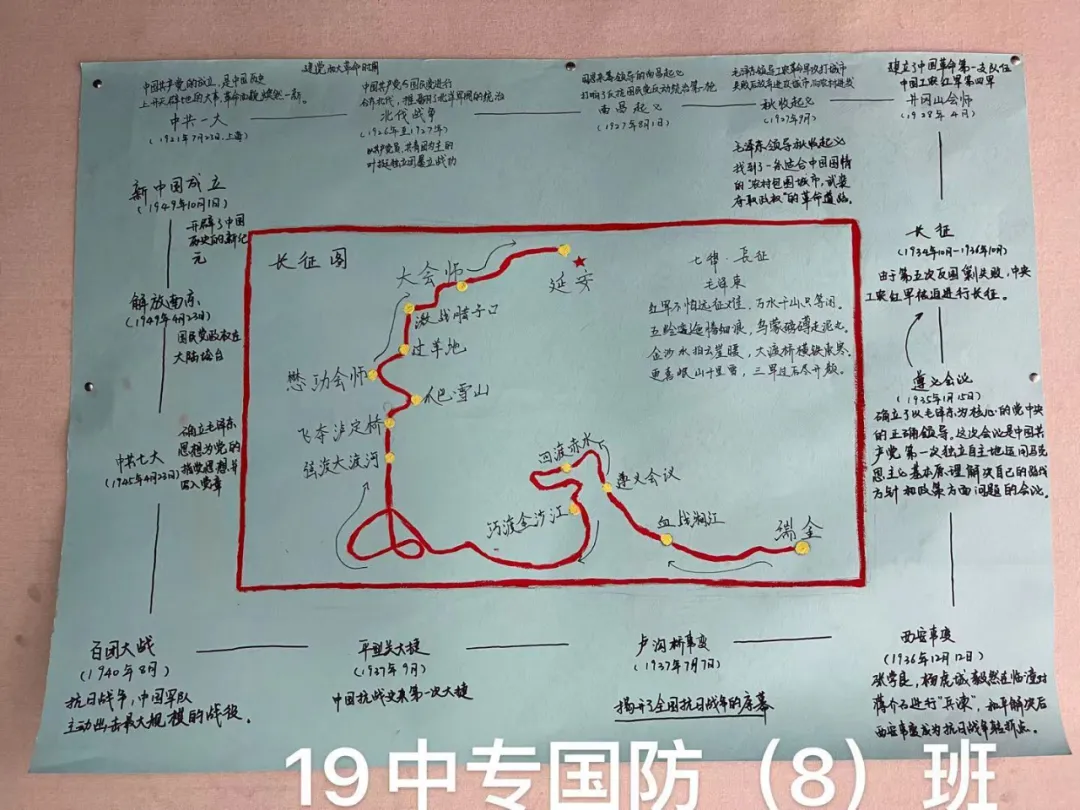 建党和大革命时期
中国共产党的成立，是中国历史
上开天辟地的大事，革命面貌焕然一新。
中共一大
(1921年7月23日，上海)
中国共产党与国民党进行
合作北伐，推翻了北洋军阀的统治
北伐战争
(1926年至1927年)
以共产党员、共青团为主的
叶挺独立团屡立战功
周恩来等领导的南昌起义
打响了反抗国民党反动统治第一枪
南昌起义
(1927年8月1日)
秋收起义
(1927年9月)
毛泽东领导秋收起义
找到了一条适合中国国情
的"农村包围城市，武装
夺取政权"的革命道路。
建立了中国革命第一支队伍
中国工农红军第四军
井冈山会师
(1928年4月)
长征
(1934年10月-1936年10月)
由于第五次反围剿失败，中央
工农红军被迫进行长征。
遵义会议
(1935年1月15日)
确立了以毛泽东为核心的党中央
的正确领导。这次会议是中国共
产党第一次独立自主地运用马克
思主义基本原理解决自己的路线
方针和政策方面问题的会议。
西安事变
(1936年12月12日)
张学良，杨虎城毅然在临潼对
蒋介石进行"兵谏"，和平解决后
西安事变成为抗日战争转折点。
卢沟桥事变
(1937年7月7日)
揭开了全国抗日战争的序幕
平型关大捷
(1937年9月)
中国抗战以来第一次大捷
百团大战
(1940年8月)
抗日战争，中国军队
主动出击最大规模的战役。
中共七大
(1945年4月23日)
确立毛泽东
思想为党的
指导思想并
写入党章
解放南京
(1949年4月23日)
国民党政权在
大陆垮台
新中国成立
(1949年10月1日)
开辟了中国
历史的新纪
元
长征图
大会师
延安
激战腊子口
过草地
懋功会师
爬雪山
飞夺泸定桥
强渡大渡河
四渡赤水
遵义会议
巧渡金沙江
血战湘江
瑞金
七律·長征
毛泽东
红军不怕远征难，万水千山只等闲。
五岭逶迤腾细浪，乌蒙磅礴走泥丸。
金沙水拍云崖暖，大渡桥横铁索寒。
更喜岷山千里雪，三军过后尽开颜。
19中专国防（8）班